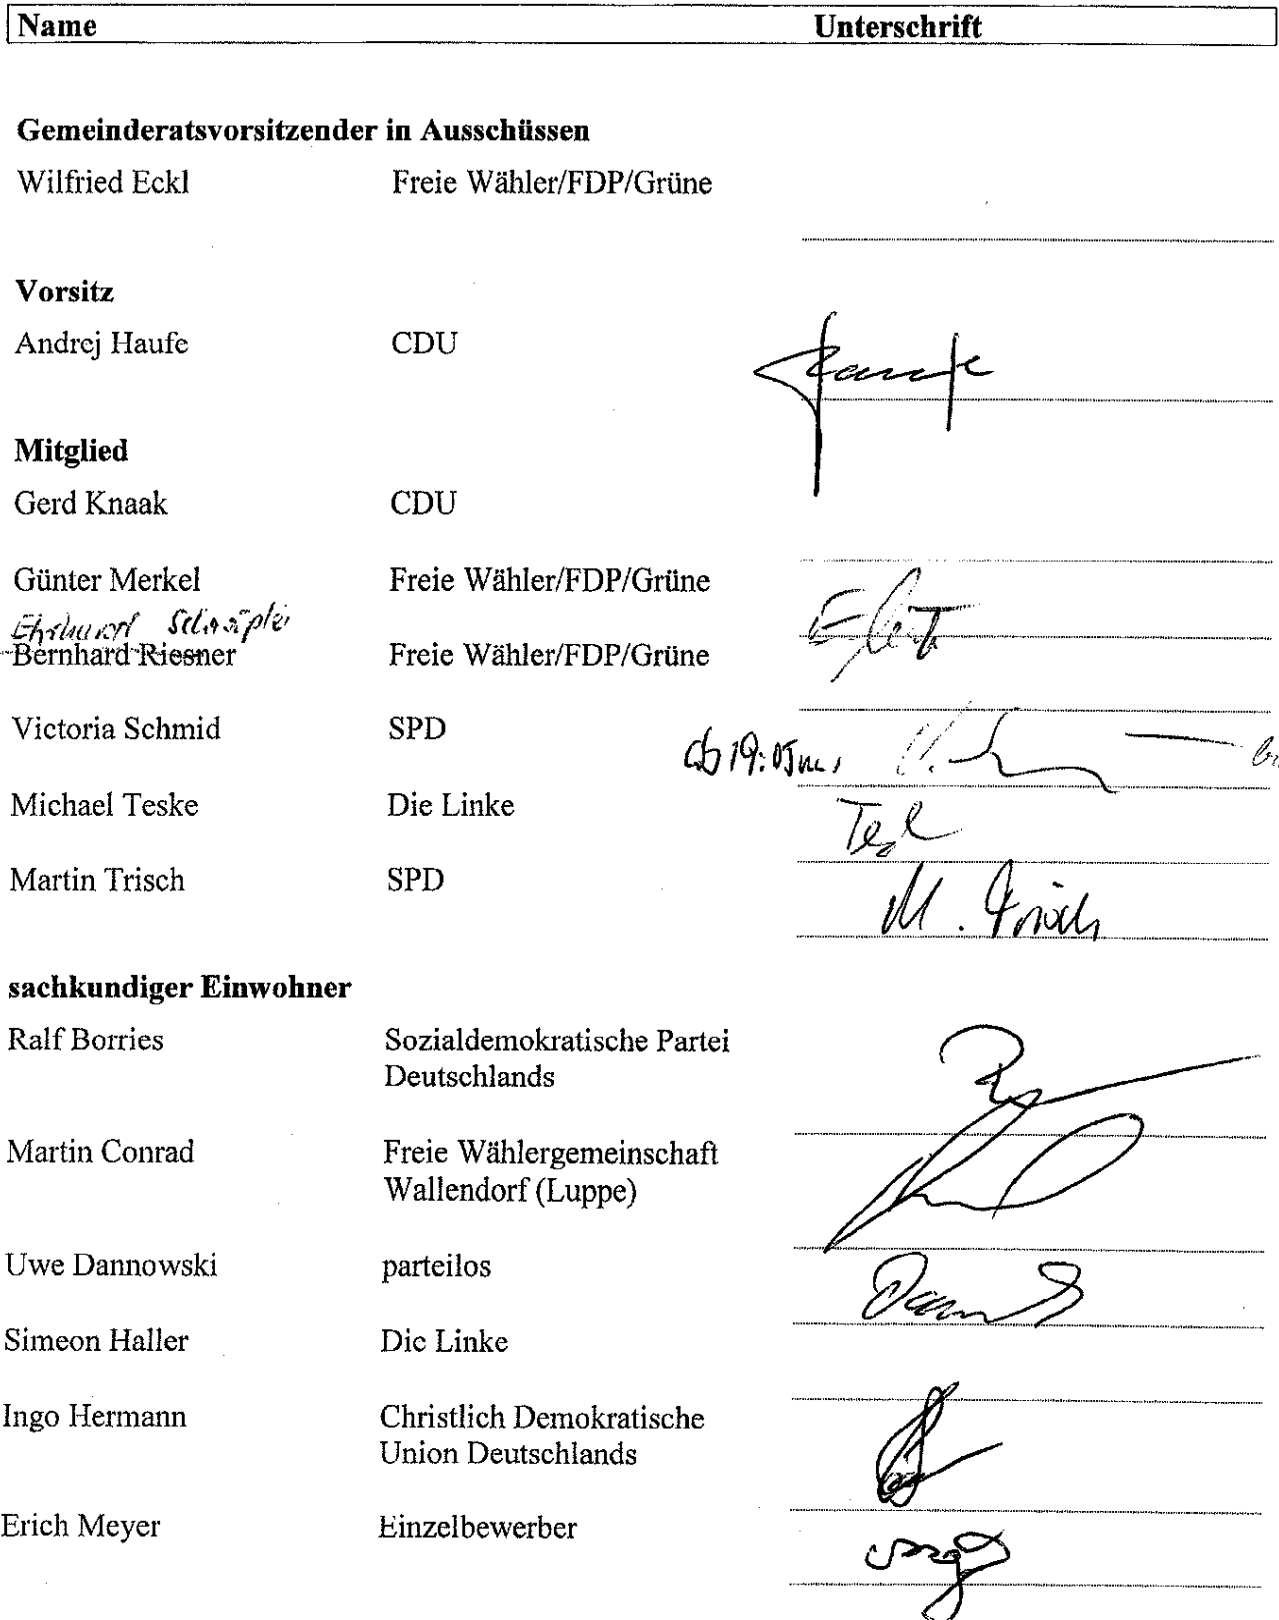 Name Unterschrift
Gemeinderatsvorsitzender in Ausschüssen
Wilfried Eckl Freie Wähler/FDP/Grüne
Vorsitz
Andrej Haufe CDU
Mitglied
Gerd Knaak CDU
Günter Merkel Freie Wähler/FDP/Grüne
Bernhard Riesner Freie Wähler/FDP/Grüne
Victoria Schmid SPD
ab 19:05
Michael Teske Die Linke
Martin Trisch SPD
M. Trisch
sachkundiger Einwohner
Ralf Borries Sozialdemokratische Partei
Deutschlands
Martin Conrad Freie Wählergemeinschaft
Wallendorf (Luppe)
Uwe Dannowski parteilos
Simeon Haller Die Linke
Ingo Hermann Christlich Demokratische
Union Deutschlands
Erich Meyer Einzelbewerber